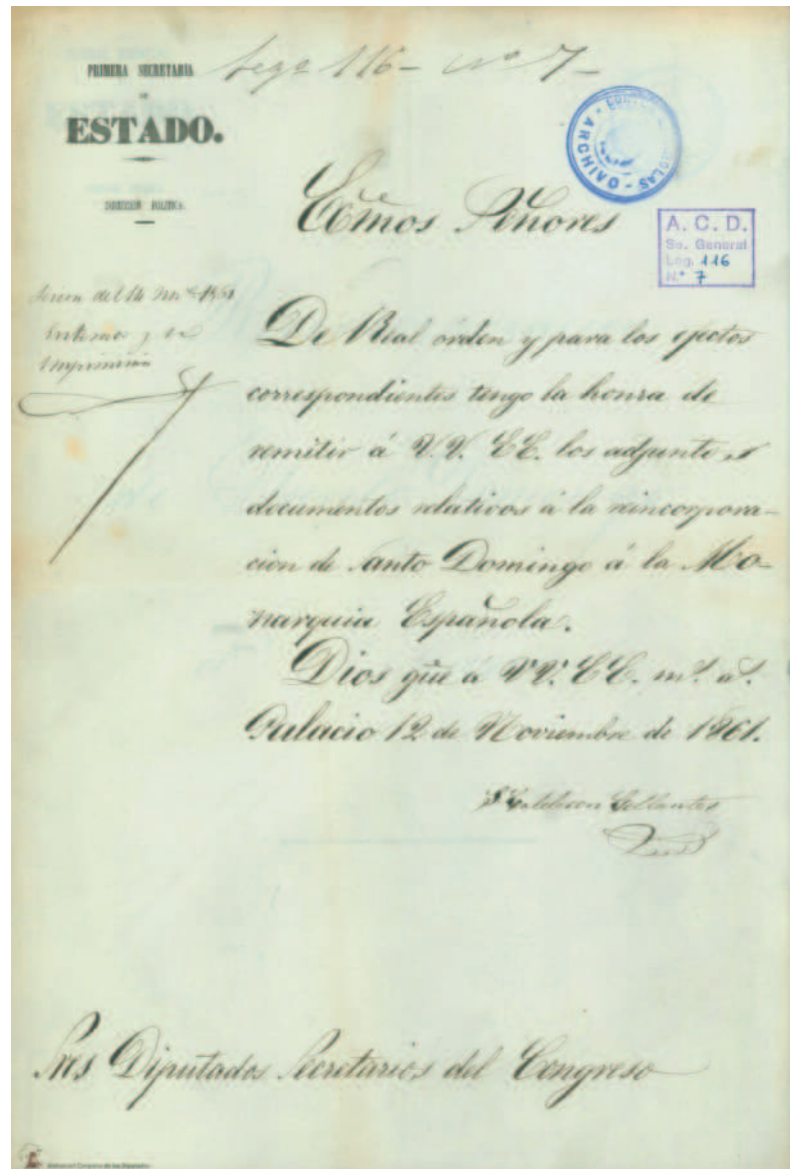 Lego 116 - nº 7 -
PRIMERA SECRETARÍA
DE
ESTADO.
DIRECCION POLITICA.
CORTES ESPAÑOLAS - ARCHIVO -
Ecmos Señores
A. C. D.
Se. General
Leg. 116
N.º 7
Sesion del 14 Nov.e 1861
Enterado y se
imprimirán
De Real orden y para los efectos
correspondientes tengo la honra de
remitir á V.V. EE. los adjuntos
documentos relativos á la reincorpora-
cion de Santo Domingo á la Mo-
narquia Española.
Dios güe á VV. EE. m.s a.s
Palacio 12 de Noviembre de 1861.
S Calderon Collantes
Sres Diputados Secretarios del Congreso